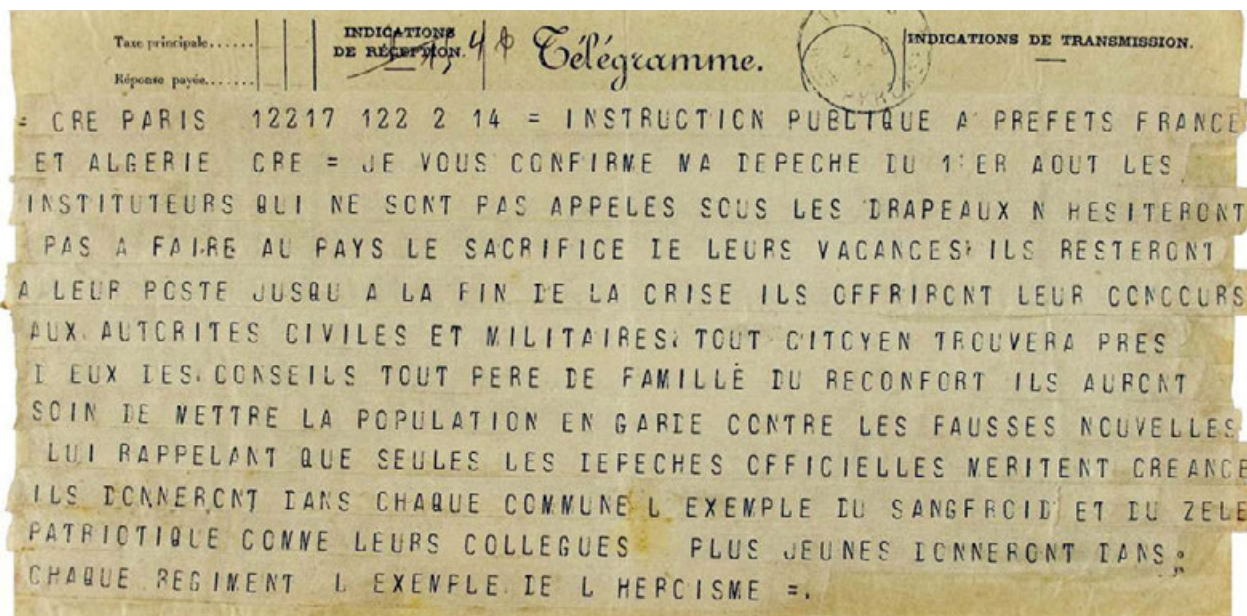 Taxe principale......
INDICATIONS
DE RÉCEPTION.
Télégramme.
INDICATIONS DE TRANSMISSION.
Réponse payée.......
= CRE PARIS 12217 122 2 14 = INSTRUCTION PUBLIQUE A PREFETS FRANCE
ET ALGERIE CRE = JE VOUS CONFIRME MA DEPECHE DU 1:ER AOUT LES
INSTITUTEURS QUI NE SONT PAS APPELES SOUS LES DRAPEAUX N HESITERONT
PAS A FAIRE AU PAYS LE SACRIFICE DE LEURS VACANCES: ILS RESTERONT
A LEUR POSTE JUSQU A LA FIN DE LA CRISE ILS OFFRIRONT LEUR CONCOURS
AUX AUTORITES CIVILES ET MILITAIRES: TOUT CITOYEN TROUVERA PRES
D EUX DES CONSEILS TOUT PERE DE FAMILLE DU RECONFORT ILS AURONT
SOIN DE METTRE LA POPULATION EN GARDE CONTRE LES FAUSSES NOUVELLES
LUI RAPPELANT QUE SEULES LES DEPECHES OFFICIELLES MERITENT CREANCE
ILS DONNERONT DANS CHAQUE COMMUNE L EXEMPLE DU SANGFROID ET DU ZELE
PATRIOTIQUE COMME LEURS COLLEGUES PLUS JEUNES DONNERONT DANS
CHAQUE REGIMENT L EXEMPLE DE L HEROISME =.